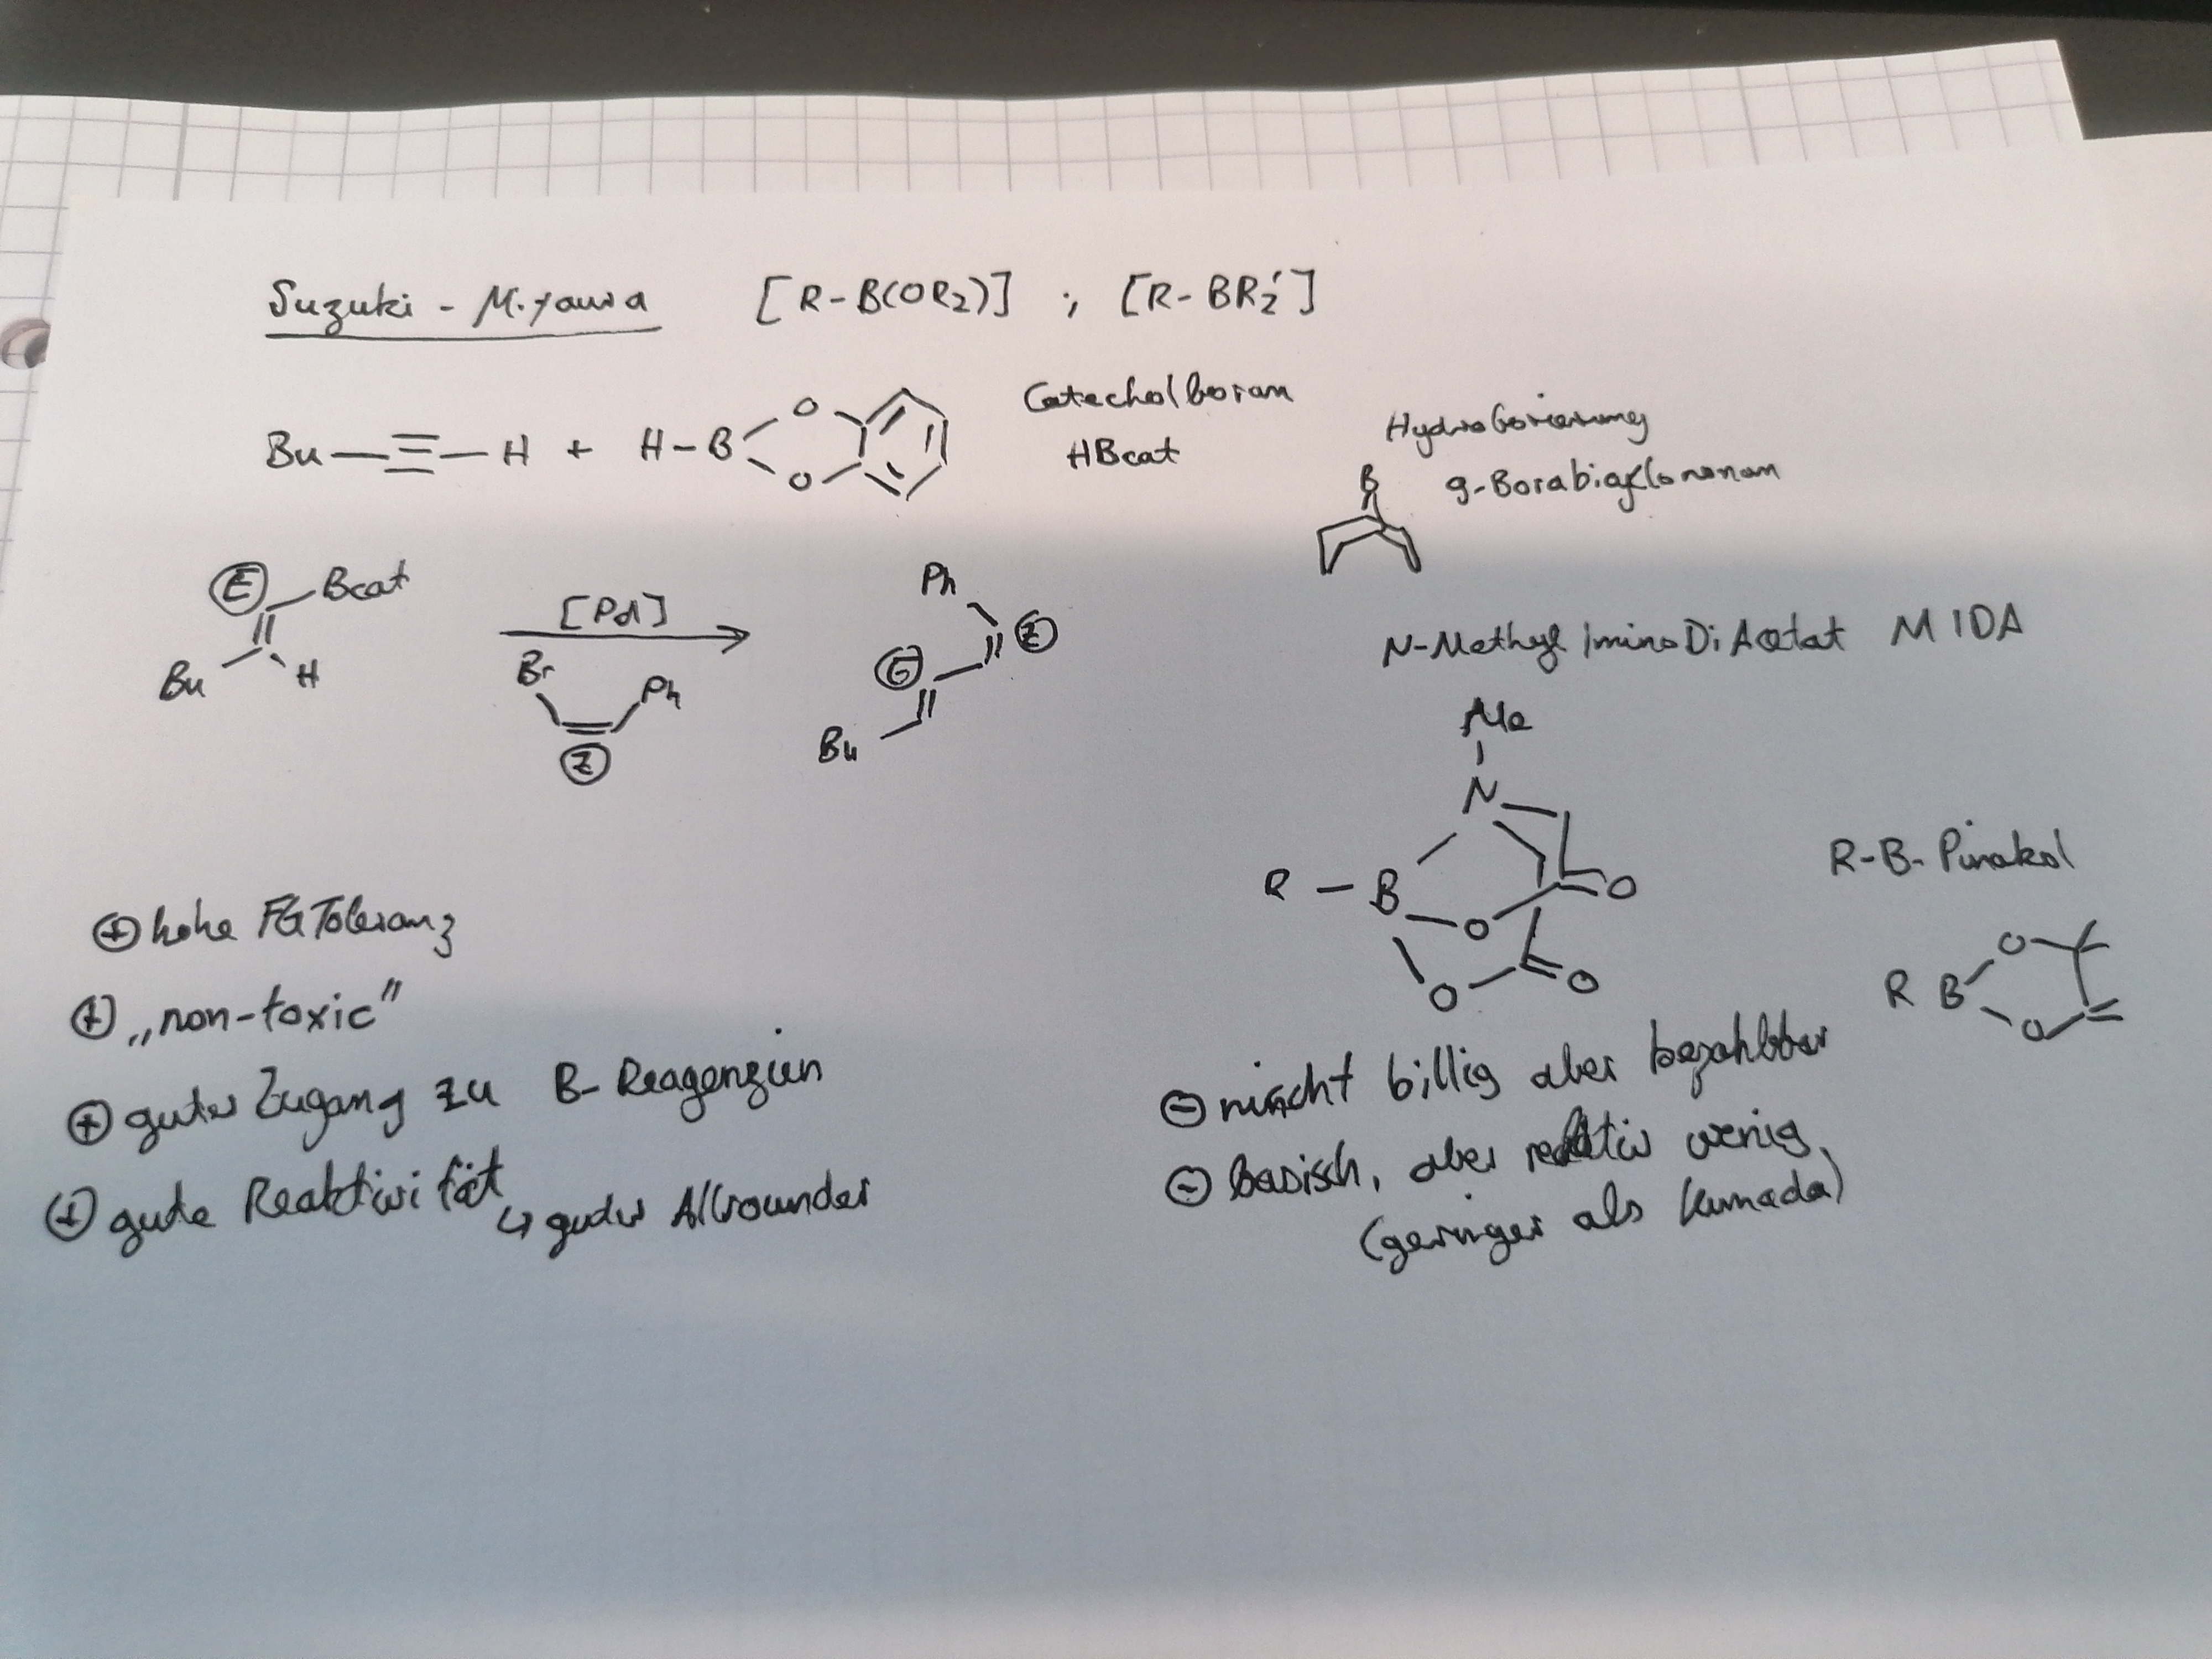 Suzuki - Miyaura [R-B(OR2)] ; [R-BR2']
Bu—≡—H + H-B O O
Catecholboran
HBcat
Hydroborierung
9-Borabicyclononan
B
E Bcat
Bu H
[Pd]
Br Ph
Z
Ph
E Z
Bu
N-Methyl Imino Di Acetat MIDA
Me
N
R - B O O
O O
R-B-Pinakol
R B O O
⊕ hohe FG Toleranz
⊕ „non-toxic"
⊕ guter Zugang zu B-Reagenzien
⊕ gute Reaktivität
↳ guter Allrounder
⊖ nicht billig aber bezahlbar
⊖ basisch, aber relativ wenig
(geringer als Kumada)